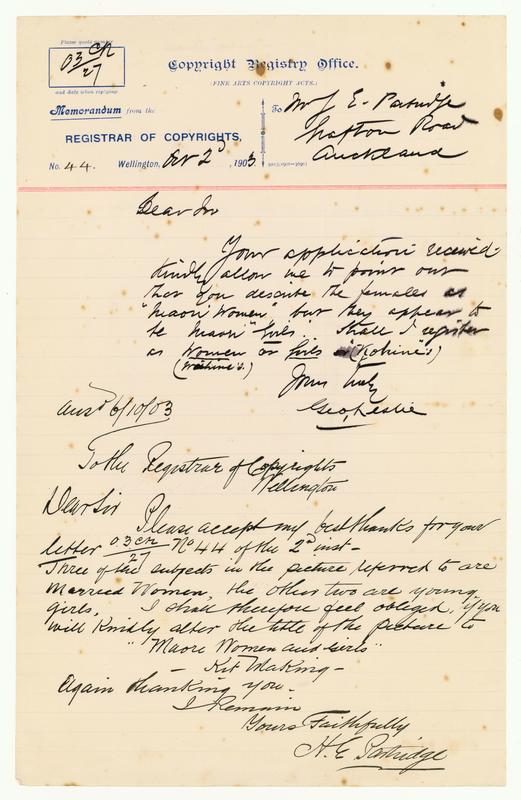 Please quote number
03 CR/27
and date when replying.
Copyright Registry Office.
(FINE ARTS COPYRIGHT ACTS.)
Memorandum from the
REGISTRAR OF COPYRIGHTS,
No. 44. Wellington, Oct 2d, 1903.
To Mr J E. Partridge
Grafton Road
Auckland
Dear Sir
Your application received.
Kindly allow me to point out
that you describe the females as
"Maori Women" but they appear to
be Maori "Girls". Shall I register
as Women or Girls (Kohine's)
(Wahine's.)
Yours Truly
Geo Leslie
Ansd 6/10/03
To the Registrar of Copyrights
Wellington
Dear Sir
Please accept my best thanks for your
letter 03 CR/27 No 44 of the 2d inst-
Three of the subjects in the picture referred to are
Married Women, the other two are young
girls. I shall therefore feel obliged, if you
will Kindly alter the title of the picture to
"Maori Women and Girls"
- Kit Making -
Again thanking you.
I Remain
Yours Faithfully
H. E. Partridge